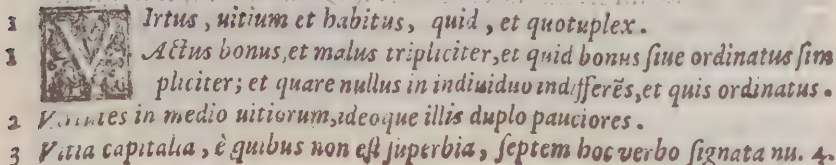 1 VIrtus, uitium et habitus, quid, et quotuplex.
1 Actus bonus, et malus tripliciter, et quid bonus siue ordinatus sim
pliciter; et quare nullus in indiuiduo indifferẽs, et quis ordinatus.
2 in medio uitiorum, ideoque illis duplo pauciores.
3 Vitia capitalia, è quibus non est superbia, septem hoc verbo signata nu. 4.